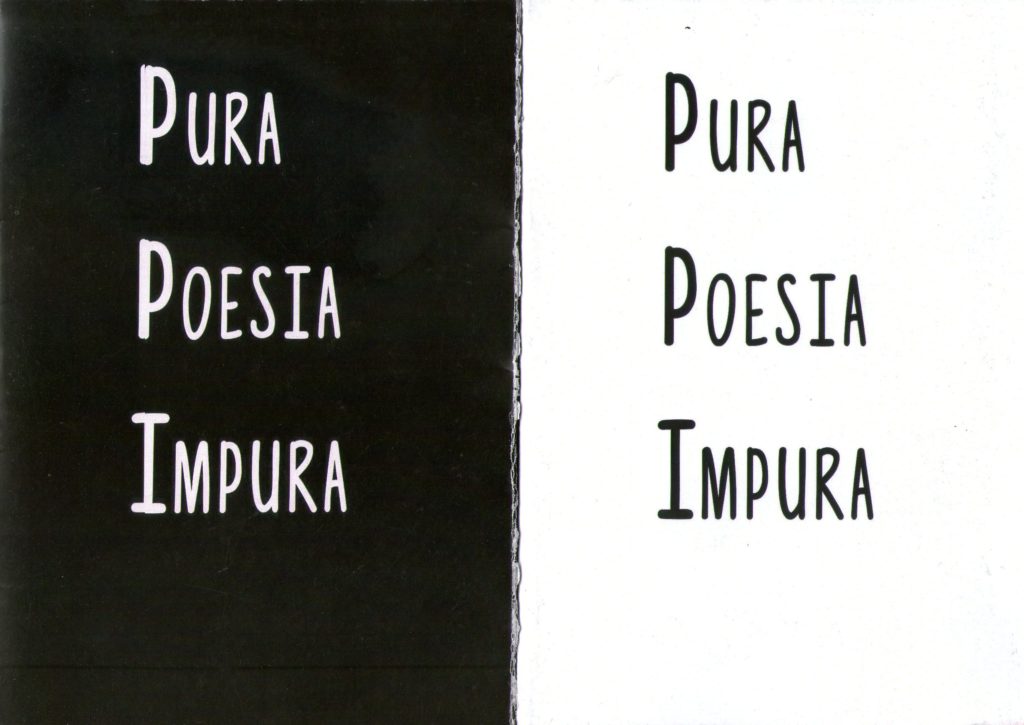 Pura
Poesia
Impura
Pura
Poesia
Impura